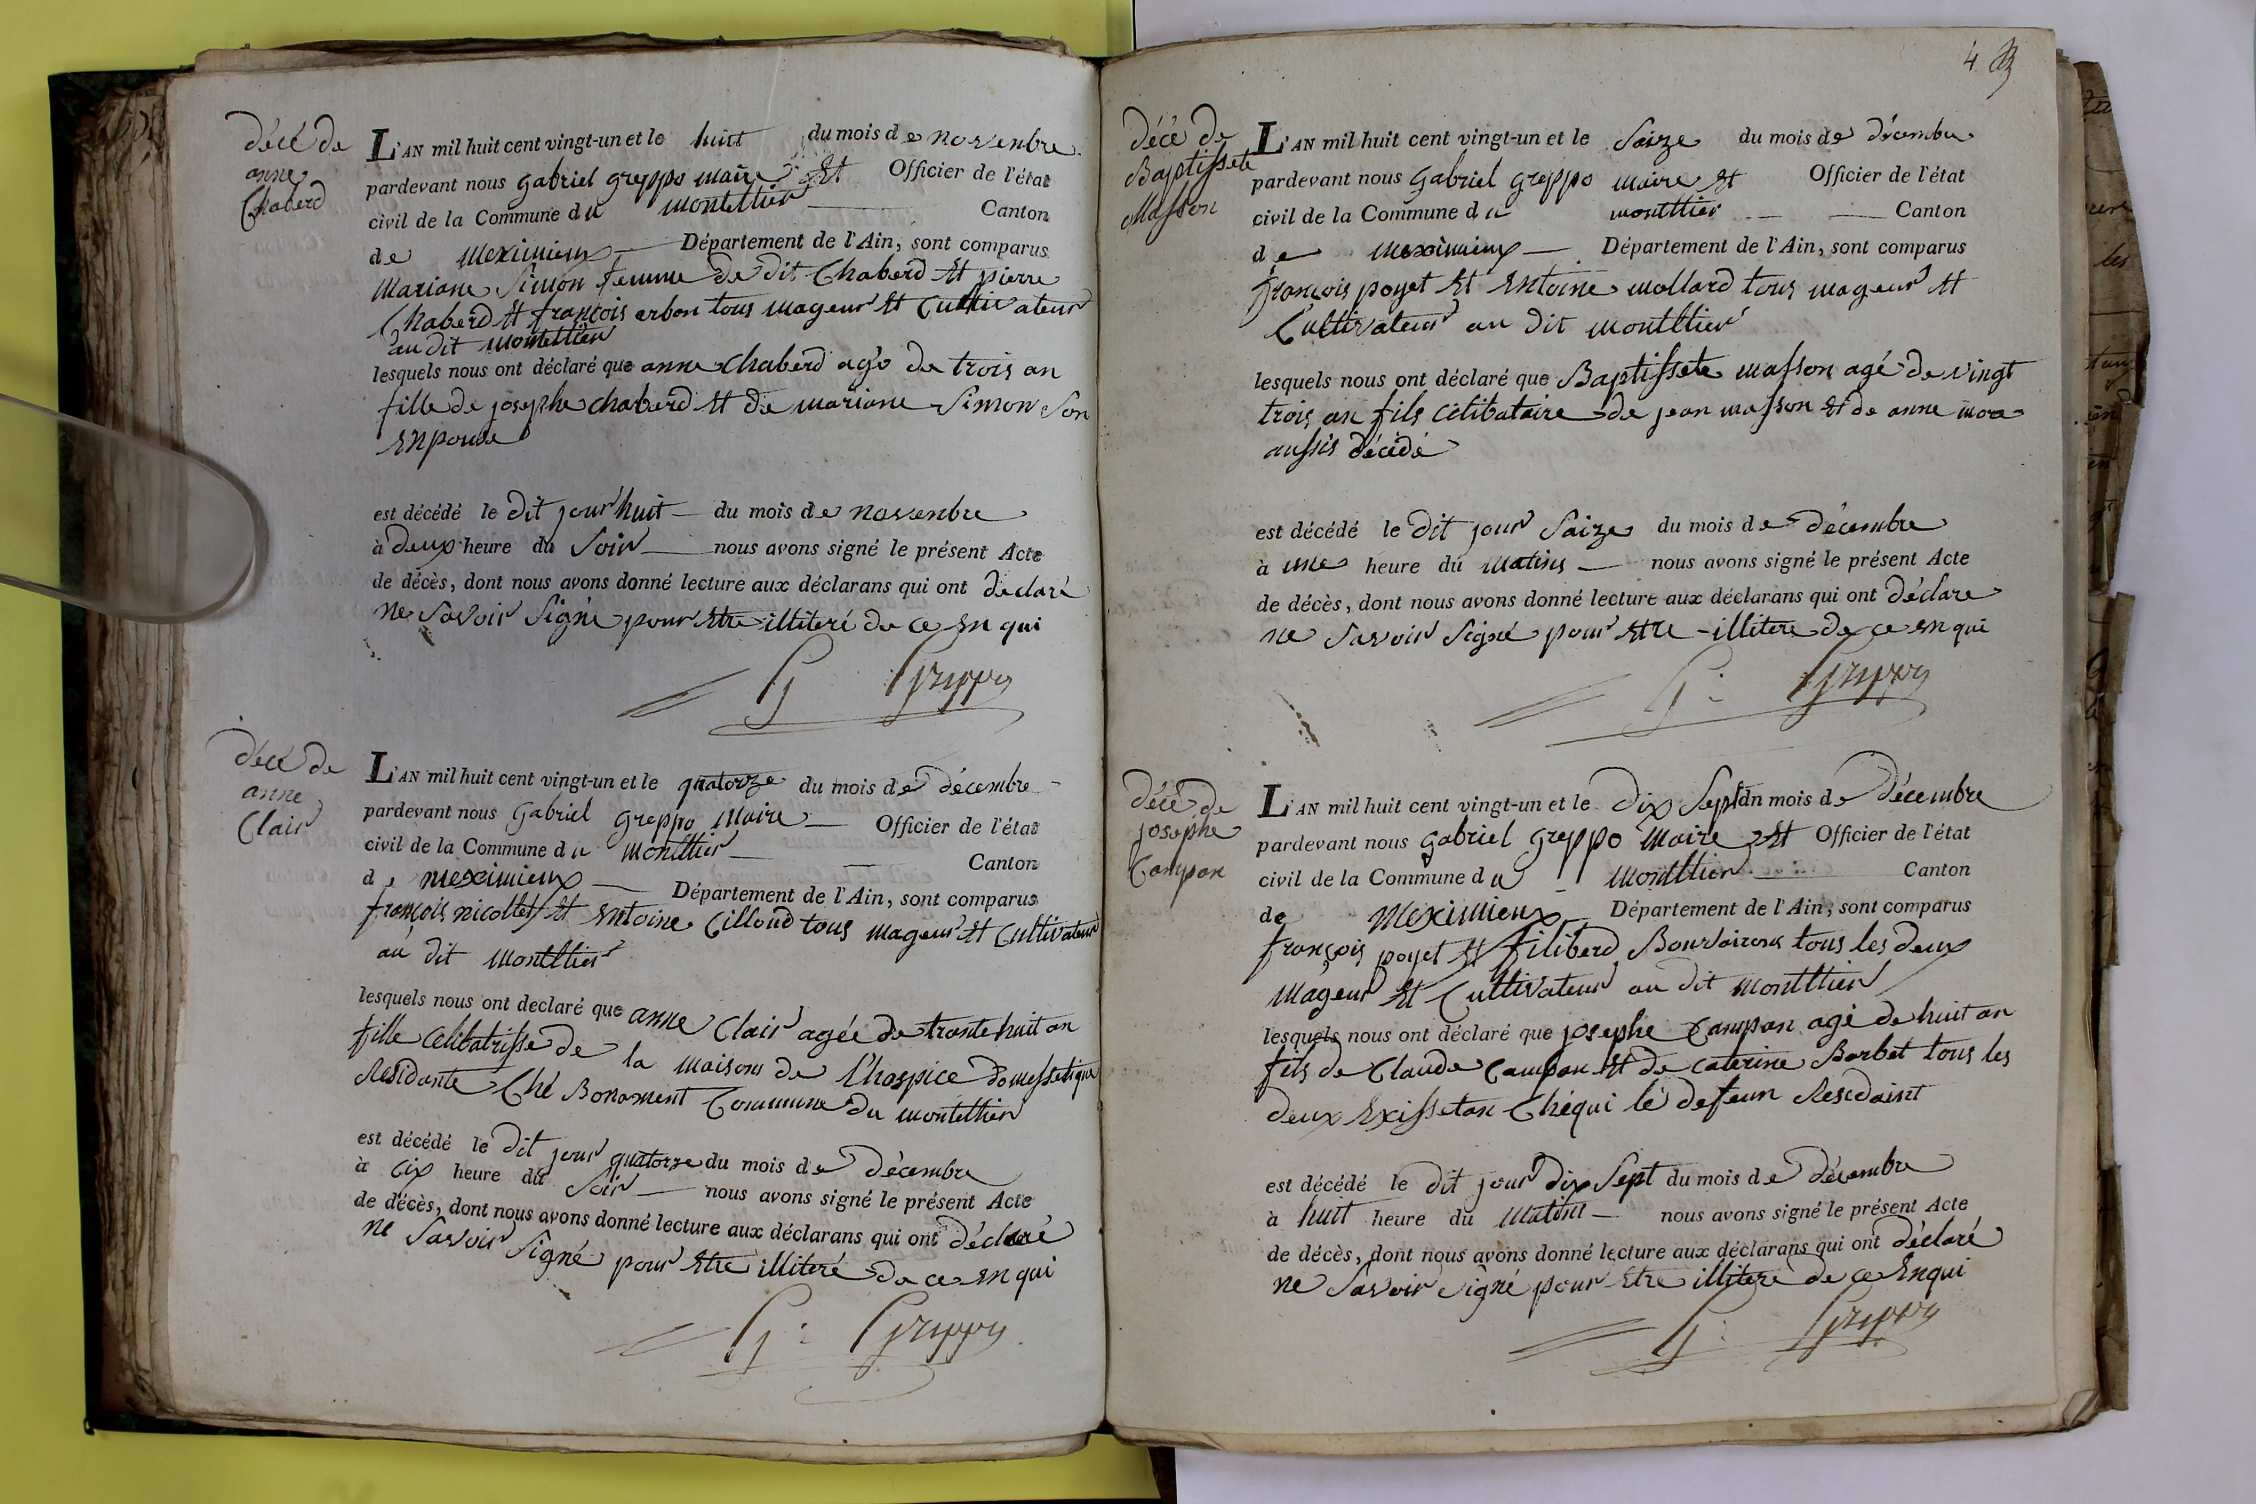 décé de
anne
Chaberd
L'AN mil huit cent vingt-un et le huit du mois de novenbre
pardevant nous gabriel greppo maire Et Officier de l'état
civil de la Commune du montellier Canton
de meximieux Département de l'Ain, sont comparus
mariane Simon femme de dit Chaberd Et pierre
Chaberd Et françois arbon tous mageur Et Cultivateur
au dit montellier
lesquels nous ont déclaré que anne chaberd agé de trois an
fille de josephe chaberd Et de mariane Simon Son
Enpouse
est décédé le dit jour huit du mois de novenbre
à deux heure du Soir nous avons signé le présent Acte
de décès, dont nous avons donné lecture aux déclarans qui ont declaré
ne Savoir Signé pour Etre illiteré de ce En qui
G Greppo
décé de
anne
Clair
L'AN mil huit cent vingt-un et le quatorze du mois de décembre
pardevant nous Gabriel greppo Maire Officier de l'état
civil de la Commune du montllier Canton
de meximieux Département de l'Ain, sont comparus
françois nicollet Et Entoine Cilloud tous mageur Et Cultivateur
au dit montllier
lesquels nous ont declaré que anne Clair agée de trante huit an
fille Celibatrisse de la maison de l'hospice domessetique
Residante Ché Bonament Commune du montellier
est décédé le dit jour quatorze du mois de décembre
à cix heure du Soir nous avons signé le présent Acte
de décès, dont nous avons donné lecture aux déclarans qui ont déclaré
ne Savoir Signé pour Etre illiteré de ce En qui
G. Greppo
4
décé de
Baptissete
Masson
L'AN mil huit cent vingt-un et le Saize du mois de décembre
pardevant nous Gabriel greppo maire Et Officier de l'état
civil de la Commune du montllier Canton
de meximieux Département de l'Ain, sont comparus
françois poyet Et Entoine mollard tous mageur Et
Cultivateur au dit montllier
lesquels nous ont déclaré que Baptissete masson agé de vingt
trois an fils célibataire de jean masson Et de anne
aussis décédé
est décédé le dit jour Saize du mois de décembre
à une heure du matins nous avons signé le présent Acte
de décès, dont nous avons donné lecture aux déclarans qui ont déclare
ne Savoir Signé pour Etre illitere de ce en qui
G. Greppo
décé de
josephe
Campan
L'AN mil huit cent vingt-un et le dix Sept du mois de décembre
pardevant nous gabriel greppo Maire Et Officier de l'état
civil de la Commune du montllier Canton
de Meximieux Département de l'Ain, sont comparus
françois poyet Et filiberd tous les deux
mageur Et Cultivateur au dit montllier
lesquels nous ont déclaré que josephe Campan agé de huit an
fils de Claude Campan Et de caterine Borbet tous les
deux Exissetan Chéqui lé defeun Resedaint
est décédé le dit jour dix Sept du mois de décembre
à huit heure du matins nous avons signé le présent Acte
de décès, dont nous avons donné lecture aux déclarans qui ont déclaré
ne Savoir Signé pour Etre illitere de ce En qui
G. Greppo